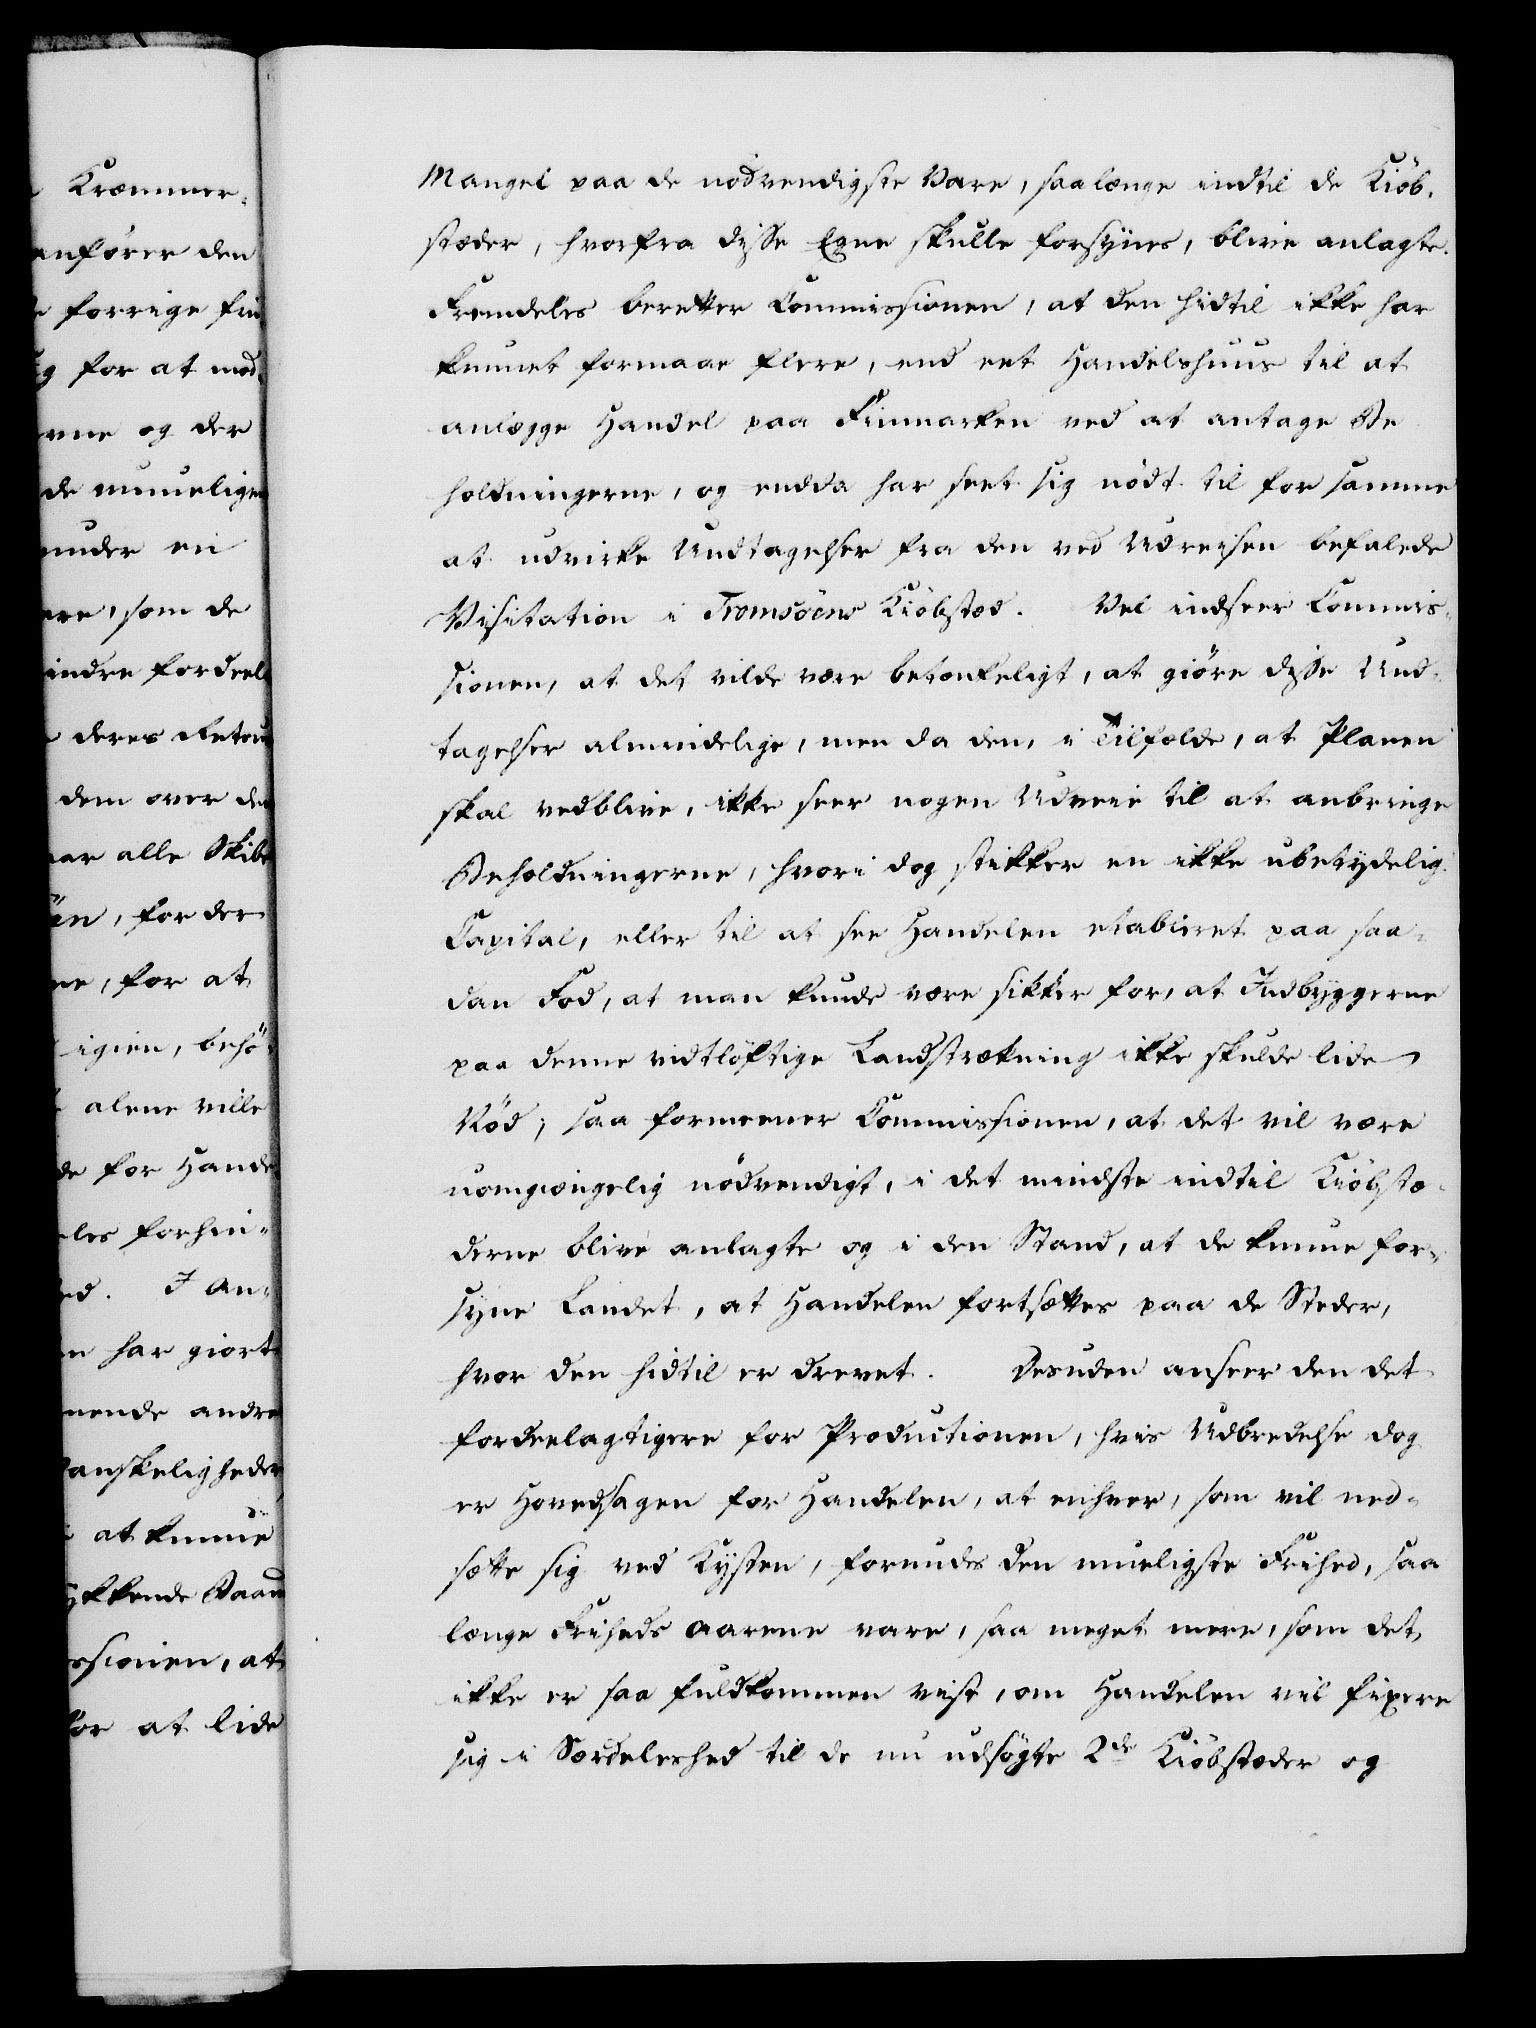 Kræmmer-
anfører den
forrige
g for at mod-
vne og der
de muueligen
under en
ere, som de
indre fordeel
deres Retour
dem over den
ar alle Skibe
en, for der
ne, for at
igien, behö-
alene ville
de for Handel
eles forhin-
ed. I an-
en har giort
nende andre
anskeligheder
at kunne
ykkende Vaar
ssionen, at
for at lide
Mangel paa de nødvendigste Vare, saalænge indtil de Kiöb-
stæder, hvorfra disse Egne skulle forsynes, blive anlagte.
Fremdeles beretter Commissionen, at den hidtil ikke har
kunnet formaae flere, end eet Handelshuus til at
anlægge Handel paa Finmarken ved at antage Be
holdningerne, og endda har seet sig nödt til for samme
at udvirke Undtagelser fra den ved Udreisen befalede
Visitation i Tromsöens Kiöbstæd. Vel indseer Commis-
sionen, at det vilde være betænkeligt, at giöre disse Und-
tagelser almindelige, men da den, i Tilfælde, at Planen
skal vedblive, ikke seer nogen Udveie til at anbringe
Beholdningerne, hvori dog stikker en ikke ubetydelig
Capital, eller til at see Handelen etableret paa saa-
dan Fod, at man kunde være sikker for, at Indbyggerne
paa denne vidtlöftige Landstrækning ikke skulde lide
Nöd; saa formeener Commissionen, at det vil være
uomgiængelig nödvendigt, i det mindste indtil Kiöbstæ-
derne blive anlagte og i den Stand, at de kunne for-
syne Landet, at Handelen fortsættes paa de Steder,
hvor den hidtil er drevet. Desuden anseer den det
fordeelagtigere for Productionen, hvis Udbredelse dog
er Hovedsagen for Handelen, at enhver, som vil ned-
sætte sig ved Kysten, forundes den mueligste Frihed, saa
længe Friheds Aarene vare, saa meget mere, som det,
ikke er saa fuldkommen vist, om Handelen vil fixere
sig i Særdeleshed til de nu udsögte 2de Kiöbstæder og